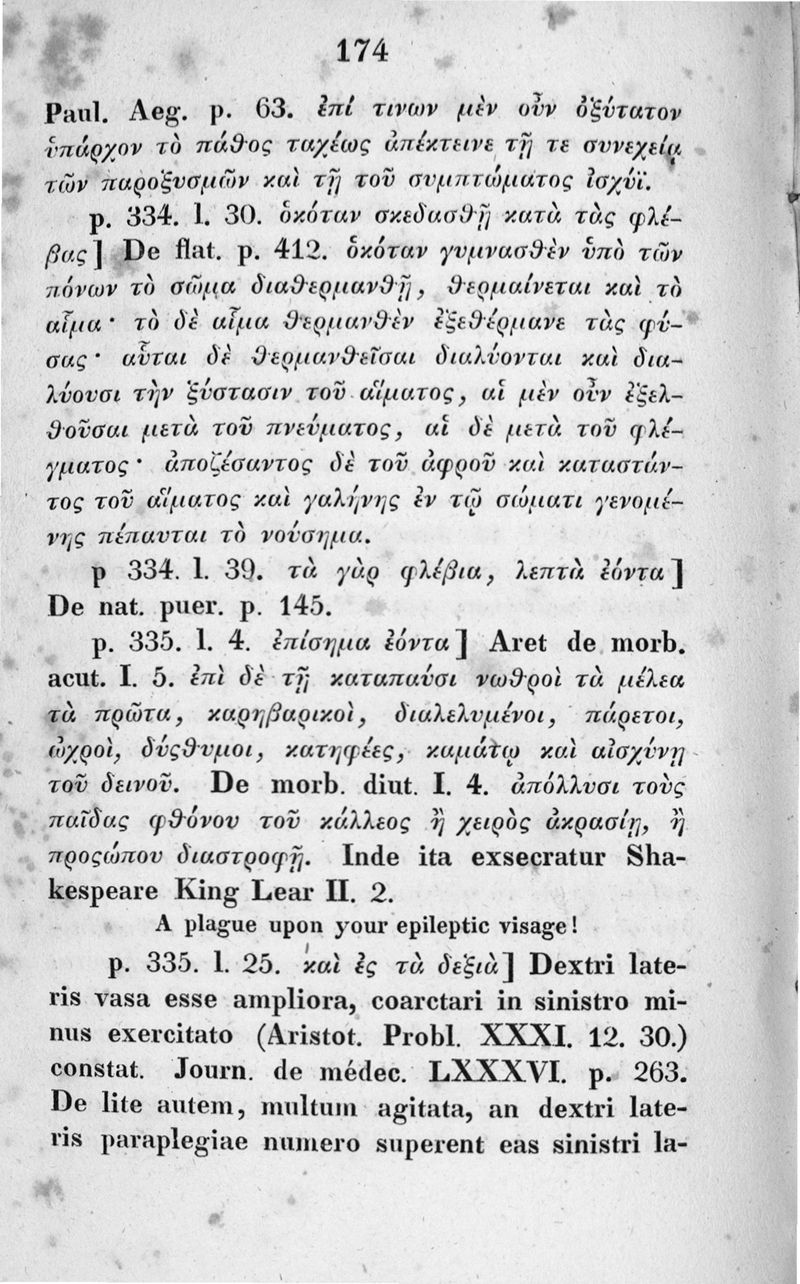 174
Paul. Aeg. p. 63. ἐπί τινων μὲν οὖν ὀξύτατον
ὑπάρχον τὸ πάθος ταχέως ἀπέκτεινε τῇ τε συνεχείᾳ
τῶν παροξυσμῶν καὶ τῇ τοῦ συμπτώματος ἰσχύϊ.
p. 334. l. 30. ὁκόταν σκεδασθῇ κατὰ τὰς φλέ-
βας] De flat. p. 412. ὁκόταν γυμνασθὲν ὑπὸ τῶν
πόνων τὸ σῶμα διαθερμανθῇ, θερμαίνεται καὶ τὸ
αἷμα· τὸ δὲ αἷμα θερμανθὲν ἐξεθέρμανε τὰς φύ-
σας· αὗται δὲ θερμανθεῖσαι διαλύονται καὶ δια-
λύουσι τὴν ξύστασιν τοῦ αἵματος, αἱ μὲν οὖν ἐξελ-
θοῦσαι μετὰ τοῦ πνεύματος, αἱ δὲ μετὰ τοῦ φλέ-
γματος· ἀποζέσαντος δὲ τοῦ ἀφροῦ καὶ καταστάν-
τος τοῦ αἵματος καὶ γαλήνης ἐν τῷ σώματι γενομέ-
νης πέπαυται τὸ νούσημα.
p 334. l. 39. τὰ γὰρ φλέβια, λεπτὰ ἐόντα]
De nat. puer. p. 145.
p. 335. l. 4. ἐπίσημα ἐόντα] Aret de morb.
acut. I. 5. ἐπὶ δὲ τῇ καταπαύσι νωθροὶ τὰ μέλεα
τὰ πρῶτα, καρηβαρικοὶ, διαλελυμένοι, πάρετοι,
ὠχροὶ, δύςθυμοι, κατηφέες, καμάτῳ καὶ αἰσχύνῃ
τοῦ δεινοῦ. De morb. diut. I. 4. ἀπόλλυσι τοὺς
παῖδας φθόνου τοῦ κάλλεος ἢ χειρὸς ἀκρασίῃ, ἢ
προςώπου διαστροφῇ. Inde ita exsecratur Sha-
kespeare King Lear II. 2.
A plague upon your epileptic visage!
p. 335. l. 25. καὶ ἐς τὰ δεξιὰ] Dextri late-
ris vasa esse ampliora, coarctari in sinistro mi-
nus exercitato (Aristot. Probl. XXXI. 12. 30.)
constat. Journ. de médec. LXXXVI. p. 263.
De lite autem, multum agitata, an dextri late-
ris paraplegiae numero superent eas sinistri la-